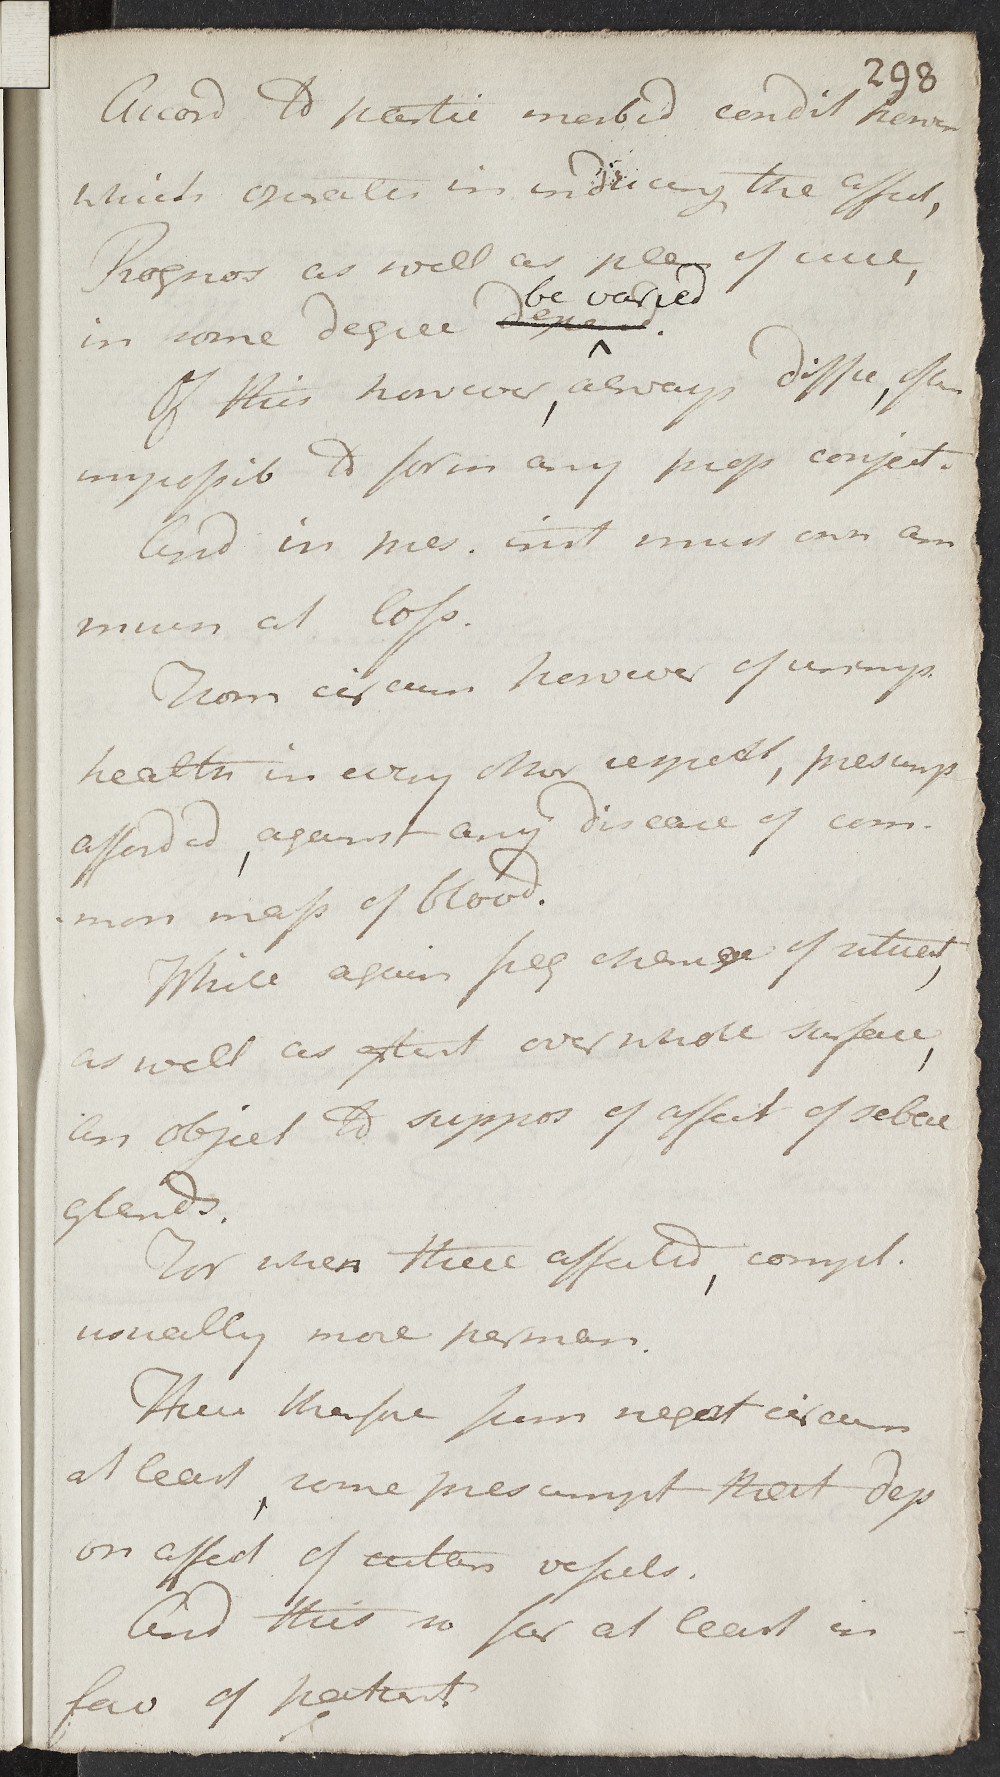 298
Accord to partic morbid condit howev
which operates in inducing the affect,
Prognos as well as plan of cure,
be varied
in some degree depend.
Of this however, always diffic, often
impossib to form any prop conject.
And in pres. inst must own am
much at loss.
From circum however of unimp.
health in every other respect, presump
afforded, against any disease of com.
mon mass of blood.
While again freq change of situat,
as well as extent over whole surface,
an object to suppos of affect of sebac
glands.
For when these affected, compl.
usually more perman.
These therefore from negat circum
at least, some presumpt that dep
on affect of cutan vessels.
And this so far at least in
fav of patient